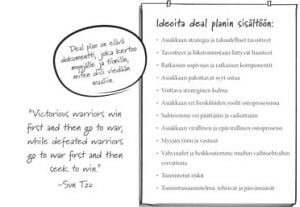 Deal plan on elävä
dokumentti, joka kertoo
myyjälle ja tiimille,
miten diili viedään
maaliin.
"Victorious warriors win
first and then go to war,
while defeated warriors
go to war first and then
seek to win."
-Sun Tzu
Ideoita deal planin sisältöön:
- Asiakkaan strategia ja taloudelliset tavoitteet
- Tavoitteet ja liiketoimintaan liittyvät haasteet
- Ratkaisun sopivuus ja ratkaisun komponentit
- Asiakkaan pakottavat syyt ostaa
- Voittava strateginen kulma
- Asiakkaan eri henkilöiden roolit ostoprosessissa
- Suhteemme eri päättäjiin ja vaikuttajiin
- Asiakkaan virallinen ja epävirallinen ostoprosessi
- Myyjän tiimi ja vastuut
- Vahvuudet ja heikkoutemme muihin vaihtoehtoihin
verrattuna
- Tunnistetut riskit
- Toimintasuunnitelma: tehtävät ja päivämäärät